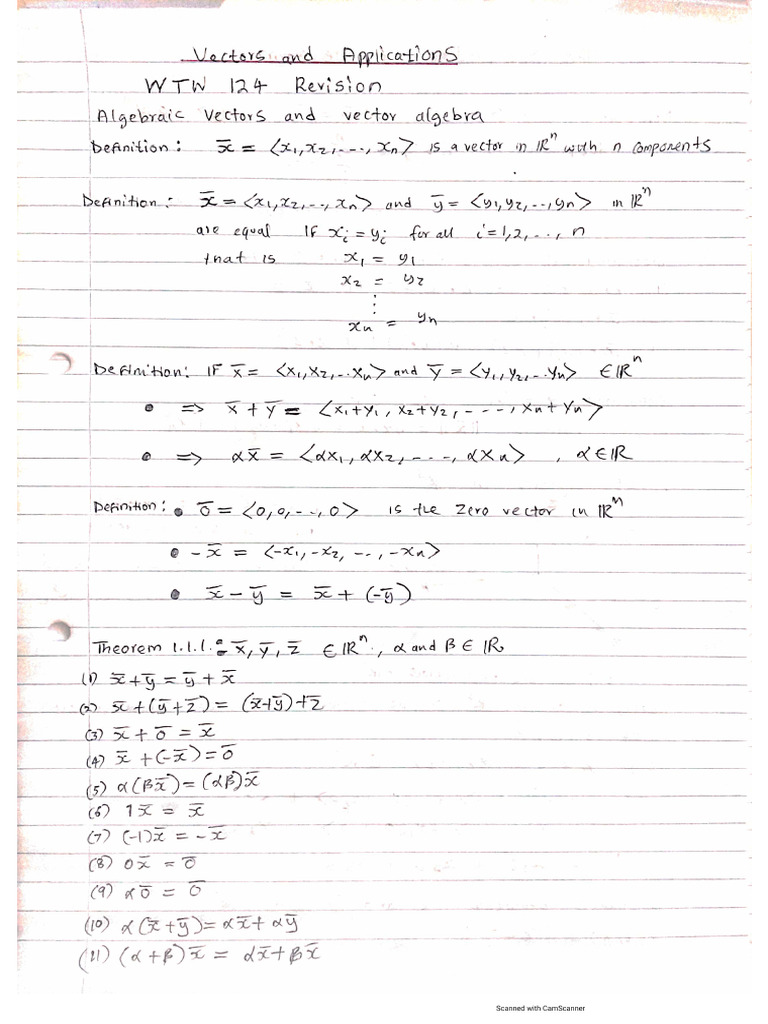 Vectors and Applications
WTW 124 Revision
Algebraic Vectors and vector algebra
Definition: x̅ = ⟨x₁, x₂, ---, xₙ⟩ is a vector in ℝⁿ with n components
Definition: x̅ = ⟨x₁, x₂, .., xₙ⟩ and y̅ = ⟨y₁, y₂, .., yₙ⟩ in ℝⁿ
are equal IF xᵢ = yᵢ for all i = 1, 2, ..., n
that is x₁ = y₁
x₂ = y₂
⋮
xₙ = yₙ
Definition: IF x̅ = ⟨x₁, x₂, .. xₙ⟩ and y̅ = ⟨y₁, y₂, .. yₙ⟩ ∈ ℝⁿ
• ⇒ x̅ + y̅ = ⟨x₁+y₁, x₂+y₂, ----, xₙ+yₙ⟩
• ⇒ αx̅ = ⟨αx₁, αx₂, ----, αxₙ⟩ , α ∈ ℝ
Definition: • 0̅ = ⟨0, 0, --, 0⟩ is the Zero vector in ℝⁿ
• -x̅ = ⟨-x₁, -x₂, --, -xₙ⟩
• x̅ - y̅ = x̅ + (-y̅)
Theorem 1.1.1: x̅, y̅, z̅ ∈ ℝⁿ, α and β ∈ ℝ
(1) x̅ + y̅ = y̅ + x̅
(2) x̅ + (y̅ + z̅) = (x̅ + y̅) + z̅
(3) x̅ + 0̅ = x̅
(4) x̅ + (-x̅) = 0̅
(5) α(βx̅) = (αβ)x̅
(6) 1x̅ = x̅
(7) (-1)x̅ = -x̅
(8) 0x̅ = 0̅
(9) α0̅ = 0̅
(10) α(x̅ + y̅) = αx̅ + αy̅
(11) (α + β)x̅ = αx̅ + βx̅
Scanned with CamScanner